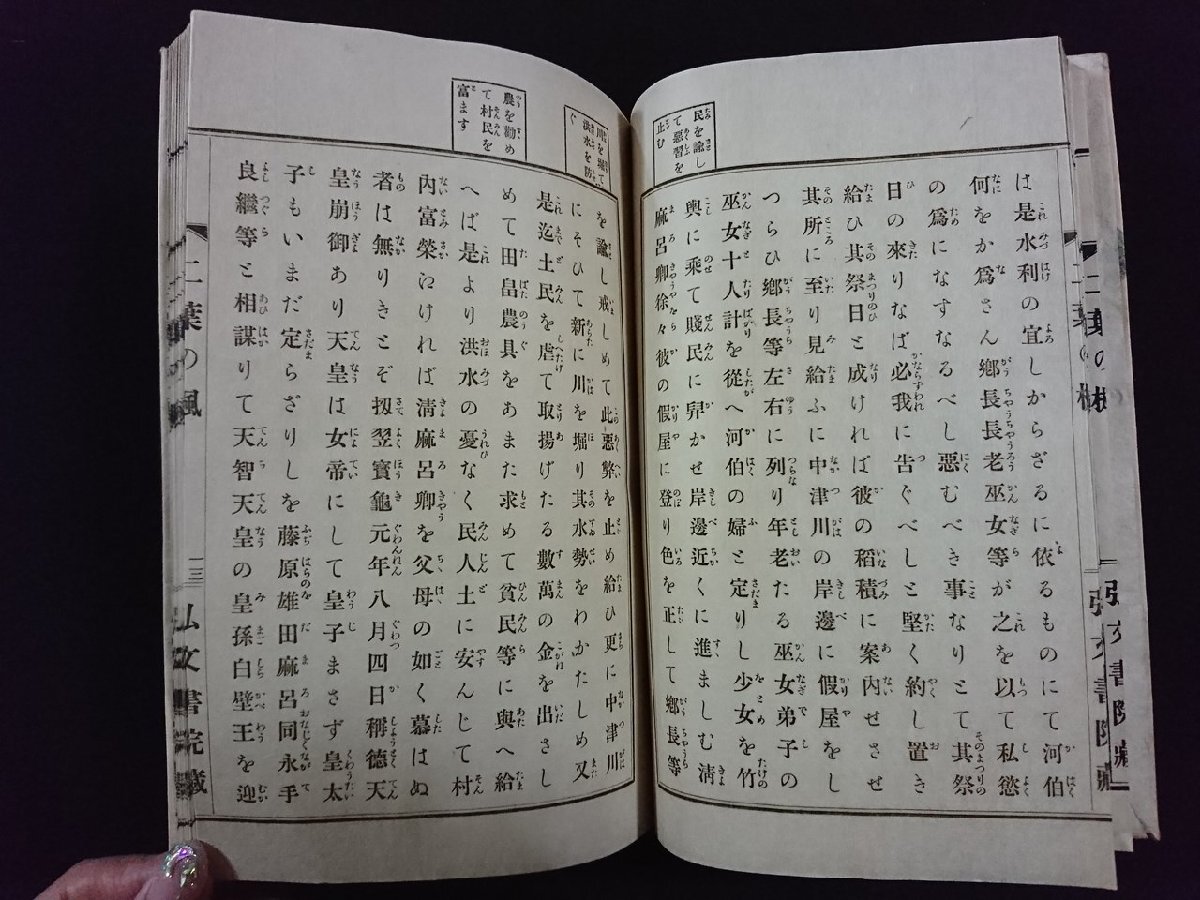 民を諭し
て悪習を
止む
は是水利の宜しからざるに依るものにて河伯
何をか爲さん郷長長老巫女等が之を以て私慾
の爲になすなるべし惡むべき事なりとて其祭
日の來りなば必我に告ぐべしと堅く約し置き
給ひ其祭日と成ければ彼の稻積に案內せさせ
其所に至り見給ふに中津川の岸邊に假屋をし
つらひ郷長等左右に列り年老たる巫女弟子の
巫女十人計を從へ河伯の婦と定りし少女を竹
輿に乘て賤民に舁かせ岸邊近くに進ましむ淸
麻呂卿徐々彼の假屋に登り色を正して郷長等
川を堀て
洪水を防
ぐ
農を勸め
て村民を
富ます
を諭し戒しめて此惡弊を止め給ひ更に中津川
にそひて新に川を堀り其水勢をわかたしめ又
是迄土民を虐て取揚げたる數萬の金を出さし
めて田畠農具をあまた求めて貧民等に與へ給
へば是より洪水の憂なく民人土に安んじて村
內富榮ゐければ淸麻呂卿を父母の如く慕はぬ
者は無りきとぞ扨翌寳龜元年八月四日稱德天
皇崩御あり天皇は女帝にして皇子まさず皇太
子もいまだ定らざりしを藤原雄田麻呂同永手
良繼等と相謀りて天智天皇の皇孫白壁王を迎
二葉の楓
三
弘文書院藏